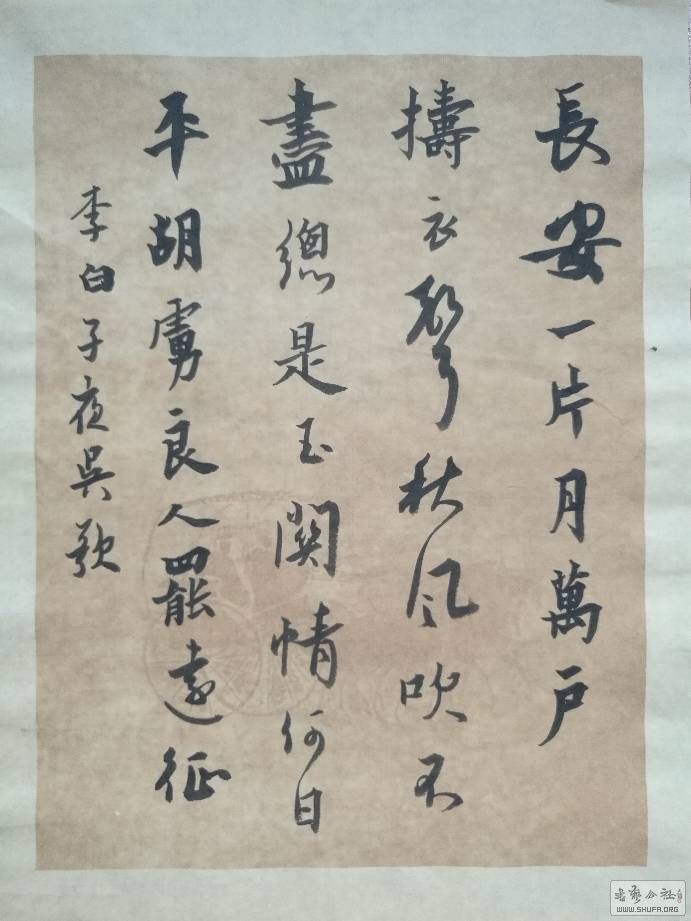 長安一片月萬戶
擣衣聲秋風吹不
盡總是玉関情何日
平胡虜良人罷遠征
李白子夜吳歌
書藝公社
WWW.SHUFA.ORG